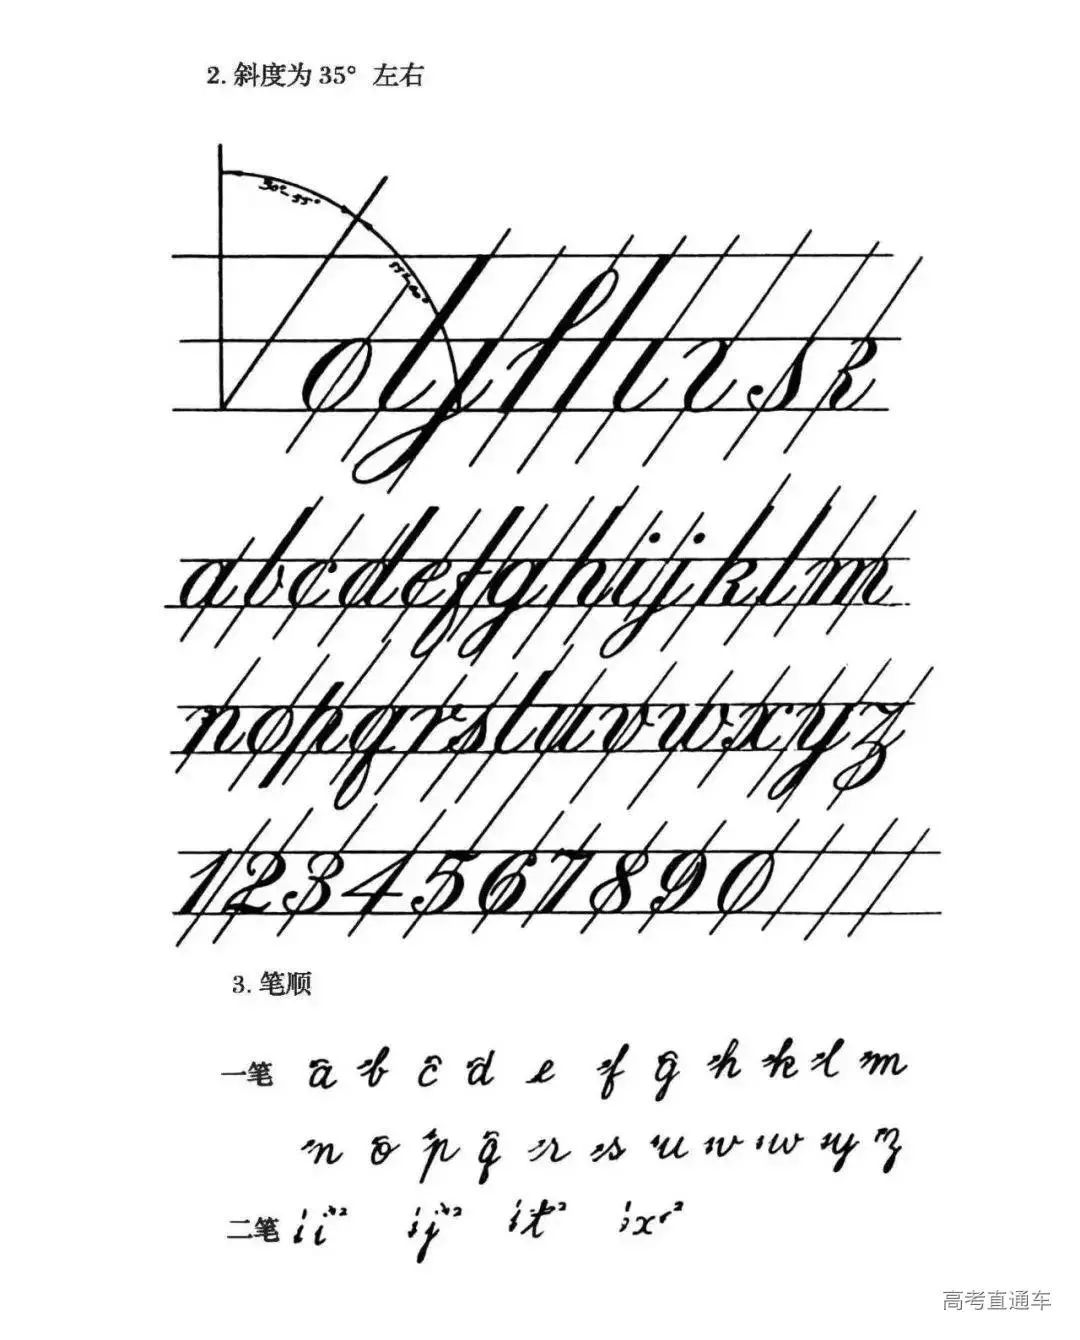 2. 斜度为 35° 左右
30°-35°
abcdefghijklm
nopqrstuvwxyz
1234567890
3. 笔顺
一笔 a b c d e f g h k l m
n o p q r s u v w y z
二笔 i j t x
高考直通车